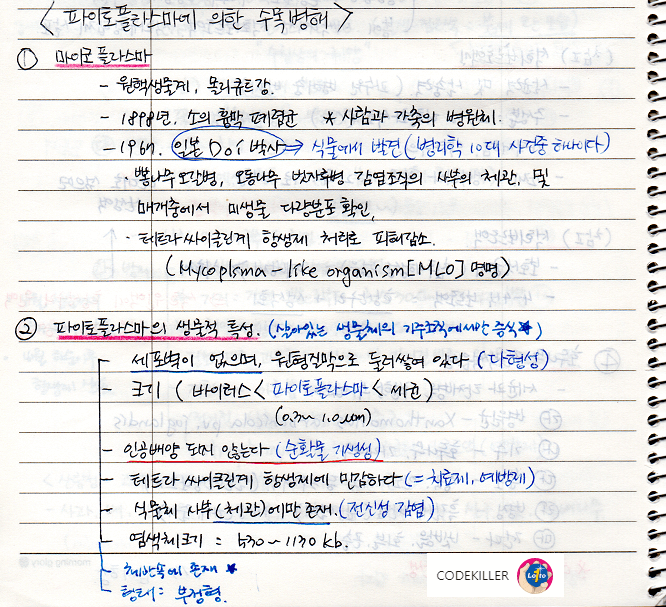 < 파이토플라스마에 의한 수목병해 >
① 마이코플라스마
- 원핵생물계, 몰리큐트강.
- 1898년, 소의 흉막폐렴균 * 사람과 가축의 병원체.
- 1967. 일본 Doi 박사 ⇒ 식물에서 발견 (병리학 10대 사건중 하나이다)
· 뽕나무 오갈병, 오동나무 빗자루병 감염조직의 사부의 체관, 및
매개충에서 미생물 다량분포 확인,
· 테트라싸이클린계 항생제 처리로 피해감소.
(Mycoplsma-like organism[MLO] 명명)
② 파이토플라스마의 생물적 특성. (살아있는 생물체의 기주조직에서만 증식★)
- 세포벽이 없으며, 원형질막으로 둘러쌓여 있다 (다형성)
- 크기 (바이러스 < 파이토플라스마 < 세균)
(0.3~1.0μm)
- 인공배양 되지 않는다 (순활물기생성)
- 테트라싸이클린계 항생제에 민감하다 (= 치료제, 예방제)
- 식물체 사부(체관)에만 존재. (전신성 감염)
- 염색체크기 = 530~1130 kb.
- 체관속에 존재 ★
형태 = 부정형.
CODEKILLER
Lotto